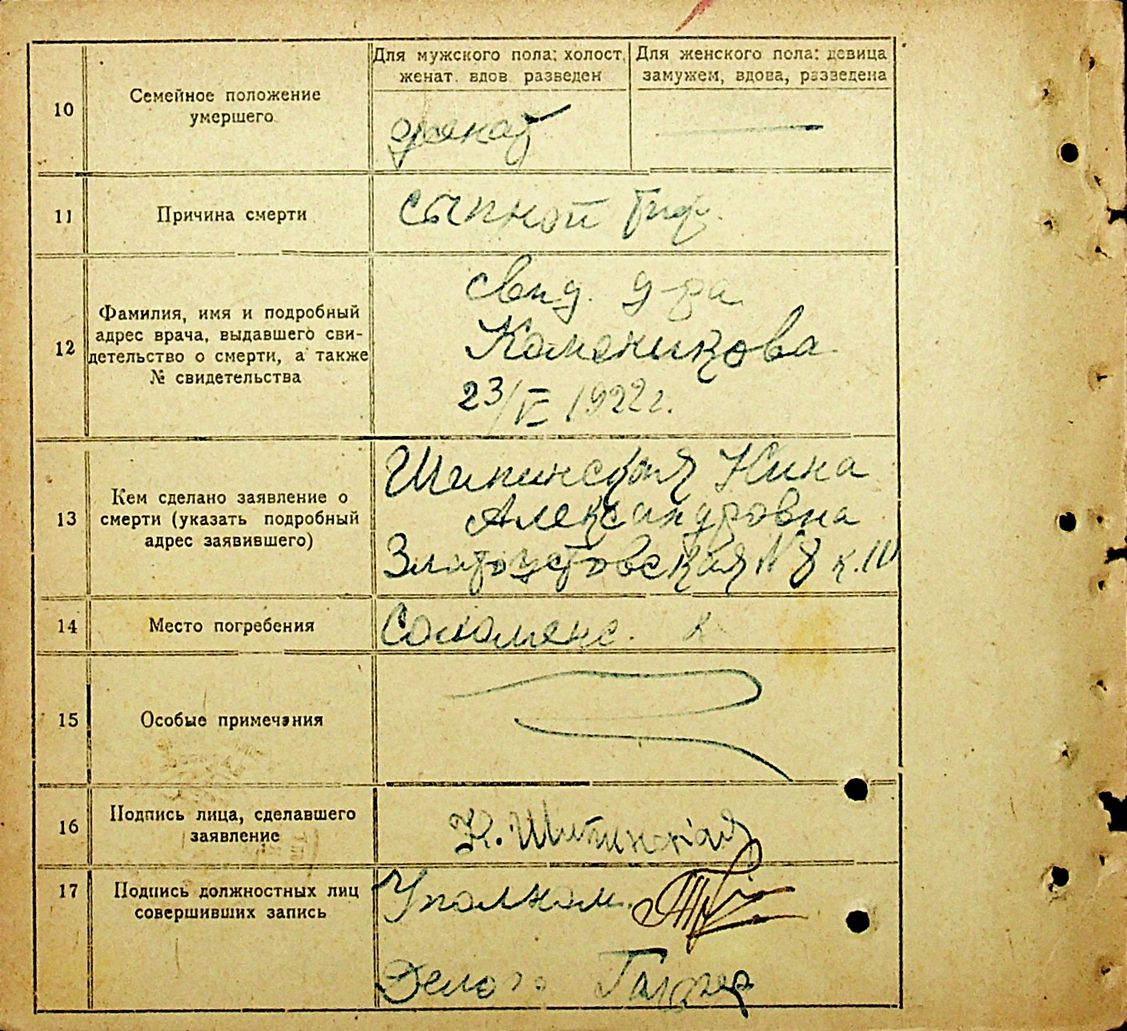 10
Семейное положение
умершего
Для мужского пола: холост,
женат. вдов разведен
Для женского пола: девица
замужем, вдова, разведена
женат
11
Причина смерти
сыпной тиф.
12
Фамилия, имя и подробный
адрес врача, выдавшего сви-
детельство о смерти, а также
№ свидетельства
свид. д-ра
Каменикова
23/V 1922 г.
13
Кем сделано заявление о
смерти (указать подробный
адрес заявившего)
Шипинская Нина
Александровна
Златоустовская № 8 к.
14
Место погребения
Соломенс. к
15
Особые примечания
16
Подпись лица, сделавшего
заявление
Н. Шипинская
17
Подпись должностных лиц
совершивших запись
Уполном.
Делоп